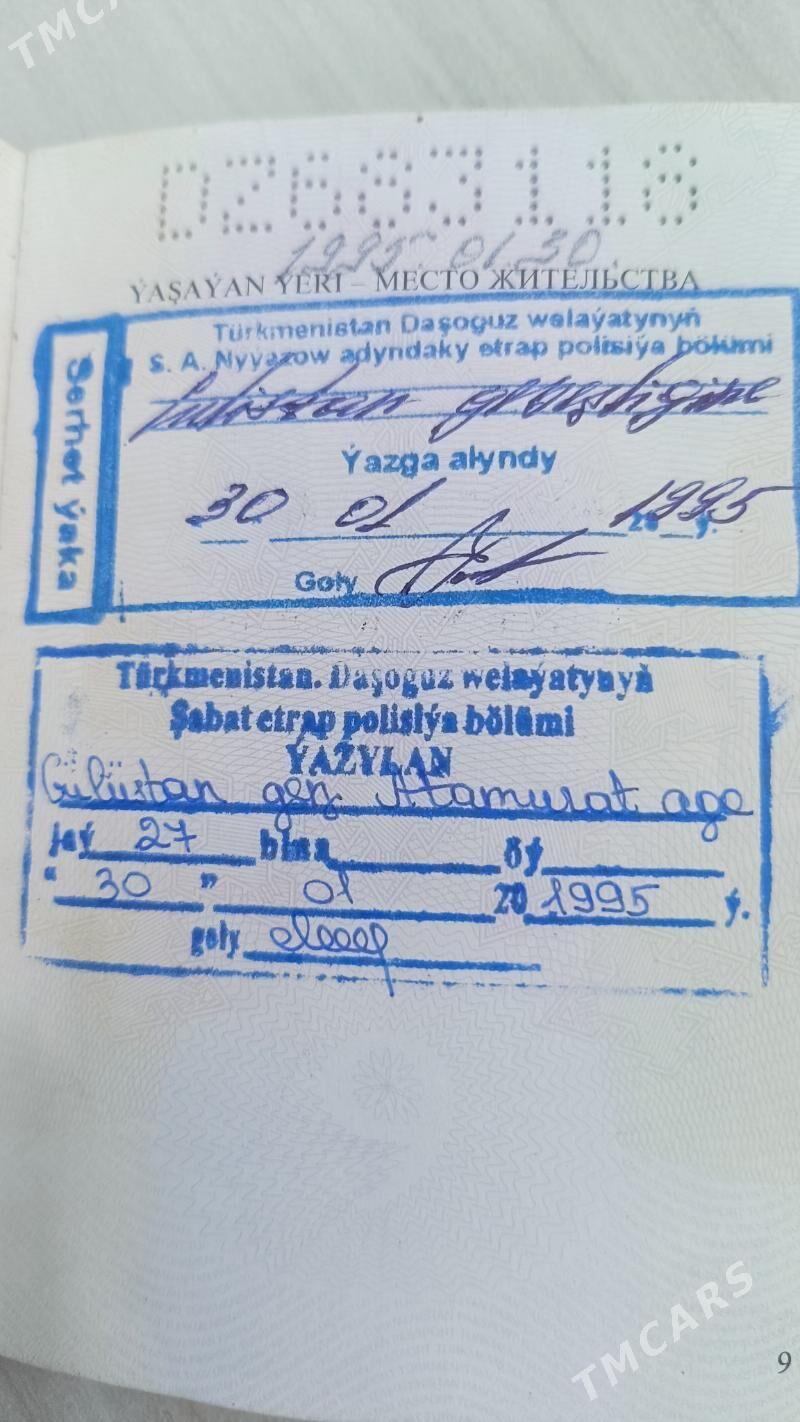 TMCARS
D2683118
1995.01.30.
ÝAŞAÝAN ÝERI – МЕСТО ЖИТЕЛЬСТВА
Serhet ýaka
Türkmenistan Daşoguz welaýatynyň
S. A. Nyýazow adyndaky etrap polisiýa bölümi
Gulistan geňeşligine
Ýazga alyndy
30 01 1995 20 ý.
Goly
Türkmenistan. Daşoguz welaýatynyň
Şabat etrap polisiýa bölümi
ÝAZYLAN
Gülüstan geň Atamurat aga
jaý 27 bina öý
" 30 " 01 20 1995 ý.
goly
TMCARS
9